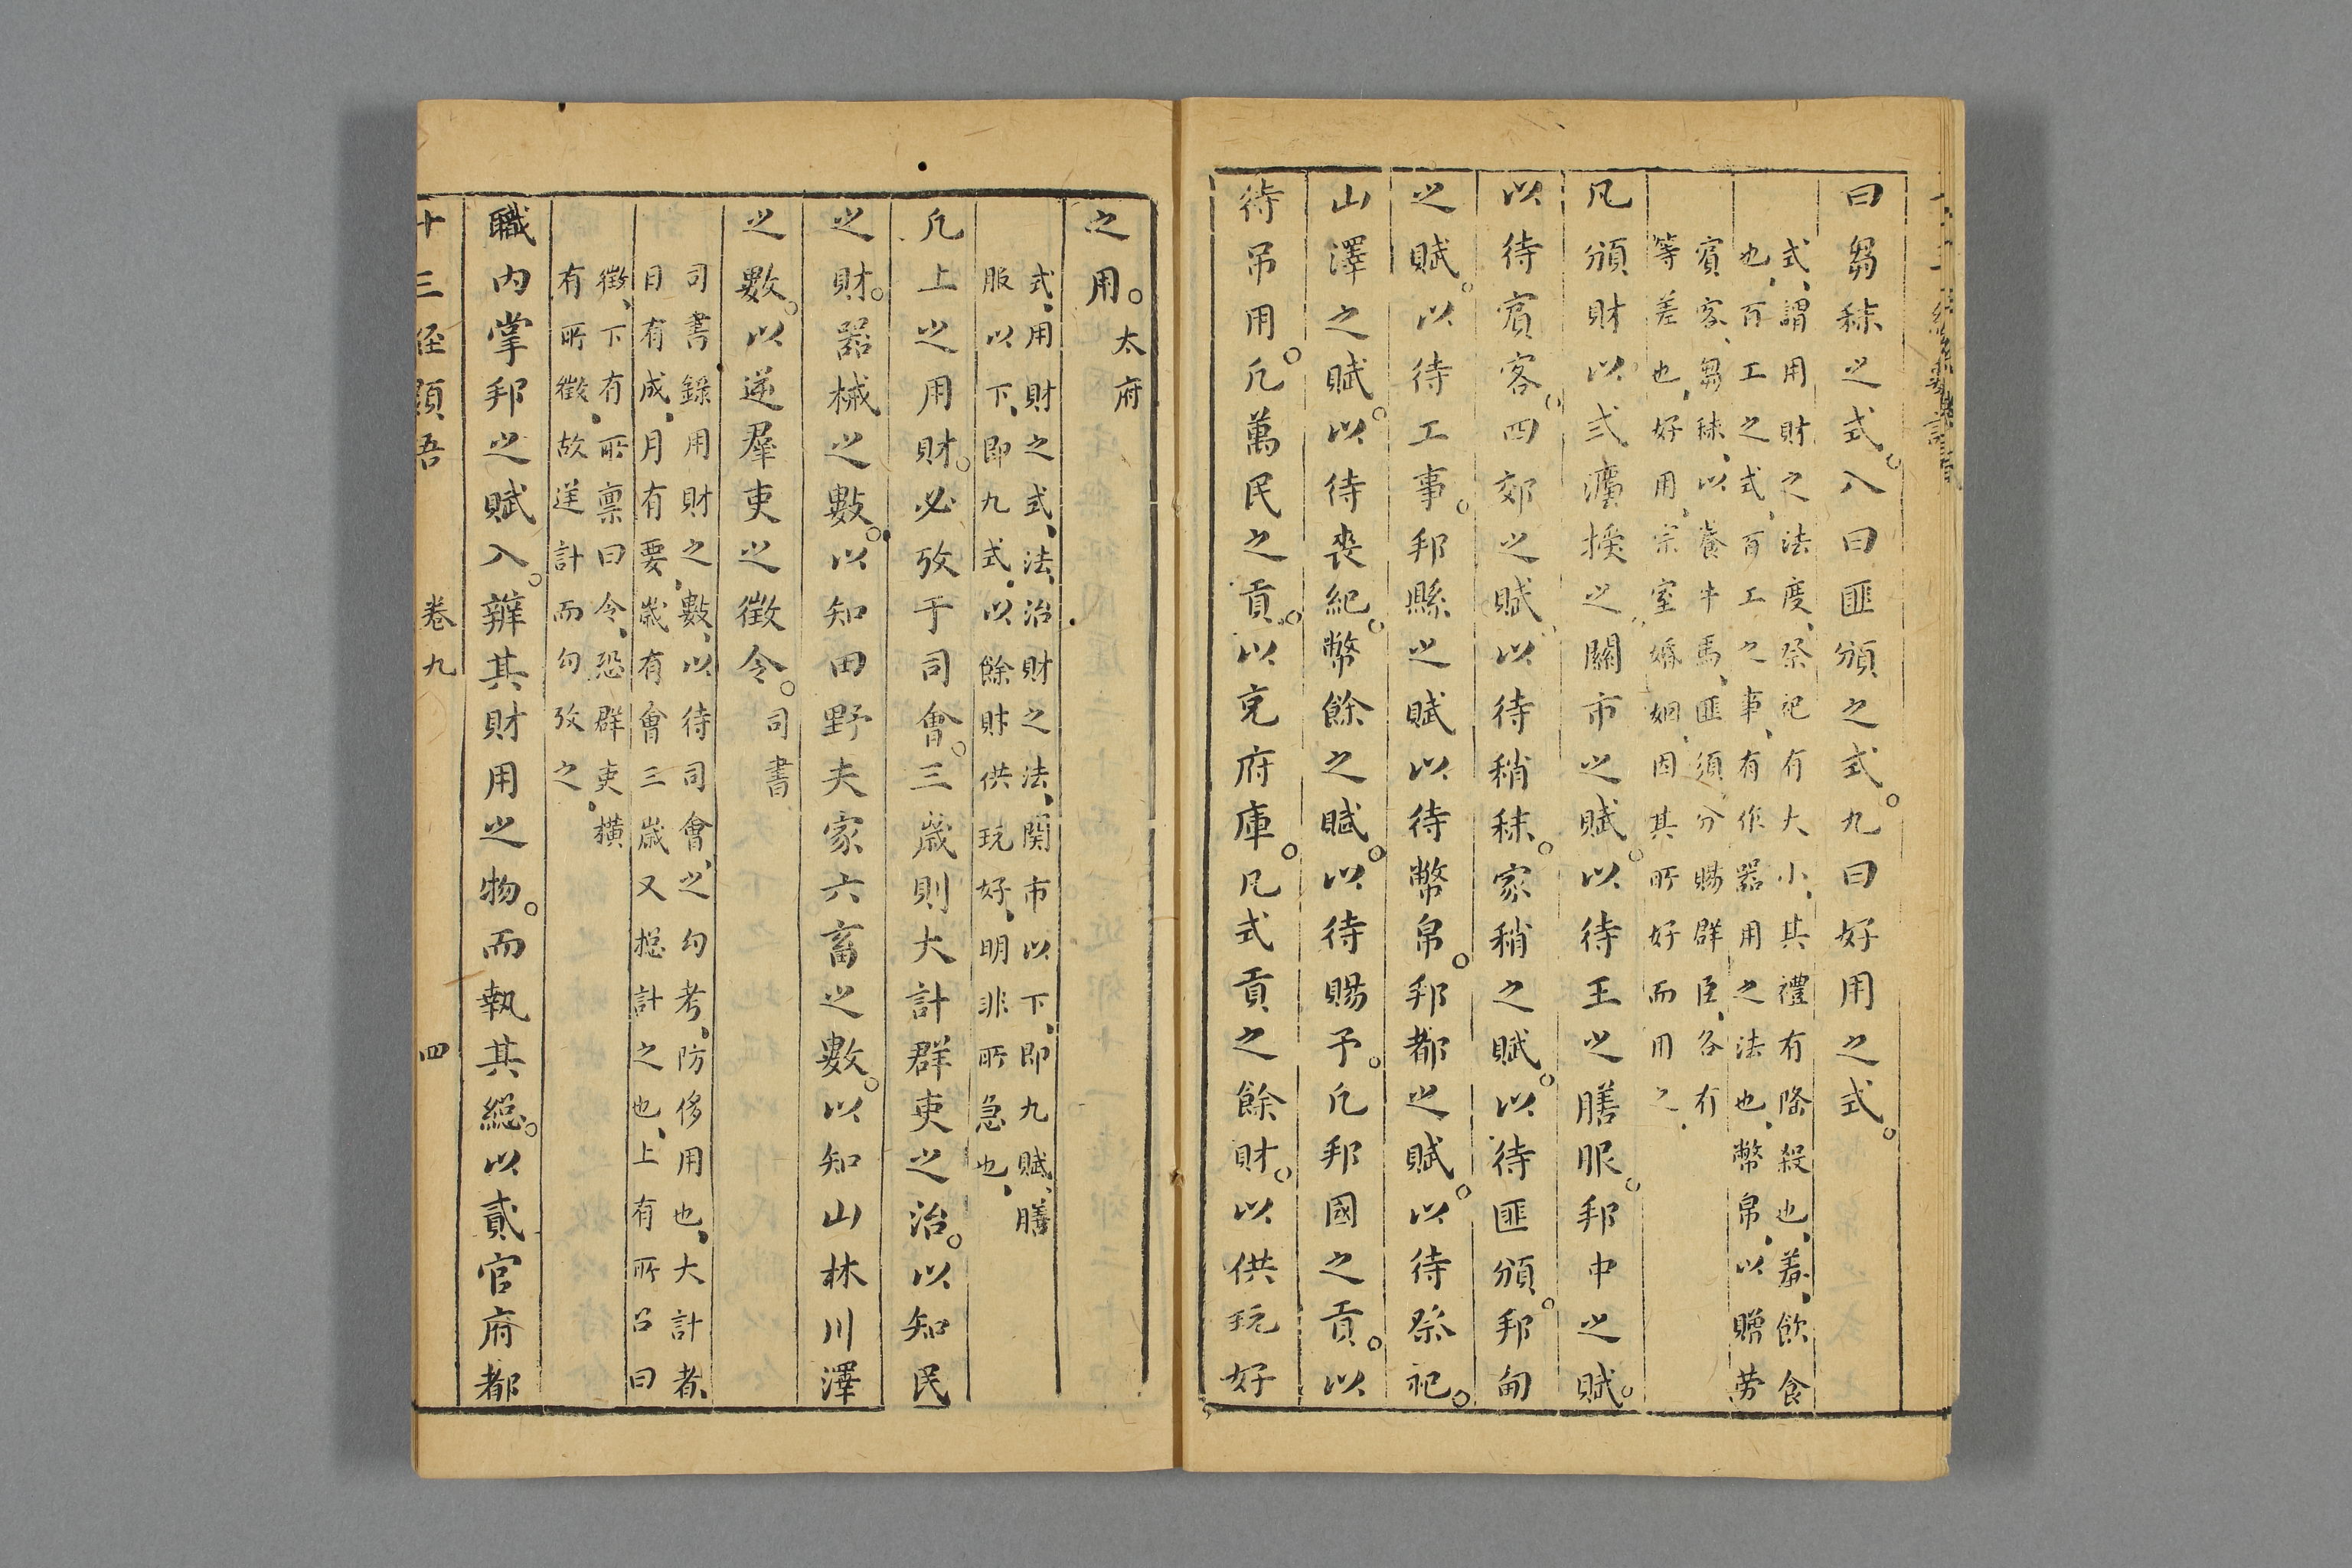 曰芻秣之式。八曰匪頒之式。九曰好用之式。
式、謂用財之法度、祭祀有大小、其禮有降殺也、羞、飲食
也、百工之式、百工之事、有作器用之法也、幣帛、以贈劳
賓客、芻秣、以養牛馬、匪須分賜群臣、各有
等差也、好用、宗室婚姻、因其所好而用之、
凡頒財以式灋授之關市之賦。以待王之膳服。邦中之賦。
以待賓客。四郊之賦以待稍秣。家稍之賦。以待匪頒。邦甸
之賦。以待工事。邦縣之賦以待幣帛。邦都之賦。以待祭祀。
山澤之賦。以待喪紀。幣餘之賦。以待賜予。凡邦國之貢。以
待吊用。凡萬民之貢。以充府庫。凡式貢之餘財。以供玩好
之用。太府
式、用財之式、法、治財之法、関市以下、即九賦、膳
服以下、即九式、以餘財供玩好、明非所急也、
凡上之用財。必攷于司會。三歲則大計群吏之治。以知民
之財。器械之數。以知田野夫家六畜之數。以知山林川澤
之數。以逆羣吏之徵令。司書
司書錄用財之數、以待司會、之勾考、防侈用也、大計者、
日有成、月有要、歲有會三歲又摠計之也、上有所召曰
徵、下有所稟曰令、恐群吏橫
有所徵、故逆計而勾攷之、
職内掌邦之賦入。辨其財用之物。而執其総。以貳官府都
十三経類吾 卷九 四